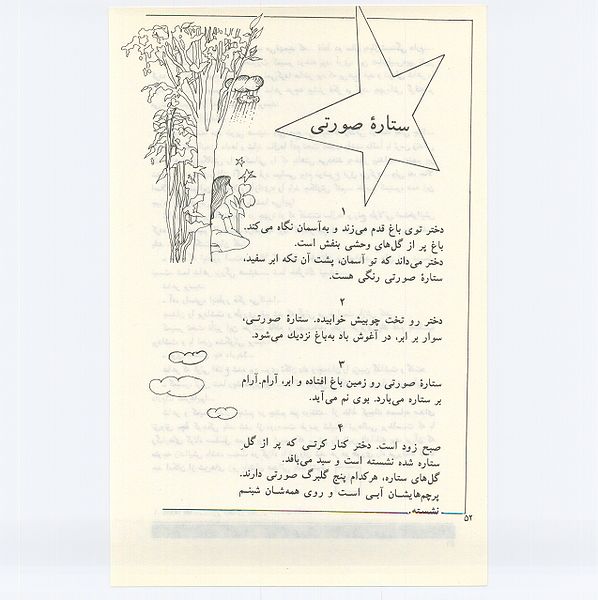 ستارهٔ صورتی
۱
دختر توی باغ قدم می‌زند و به‌آسمان نگاه می‌کند.
باغ پر از گل‌های وحشی بنفش است.
دختر می‌داند که تو آسمان، پشت آن تکه ابر سفید،
ستارهٔ صورتی رنگی هست.
۲
دختر رو تخت چوبیش خوابیده. ستارهٔ صورتـی،
سوار بر ابر، در آغوش باد به‌باغ نزدیك می‌شود.
۳
ستارهٔ صورتی رو زمین باغ افتاده و ابر، آرام.آرام
بر ستاره می‌بارد. بوی نم می‌آید.
۴
صبح زود است. دختر کنار کرتـی که پر از گل
ستاره شده نشسته است و سبد می‌بافد.
گل‌های ستاره، هرکدام پنج گلبرگ صورتی دارند.
پرچم‌هایشـان آبـی است و روی همه‌شان شبنـم
نشسته.
۵۲